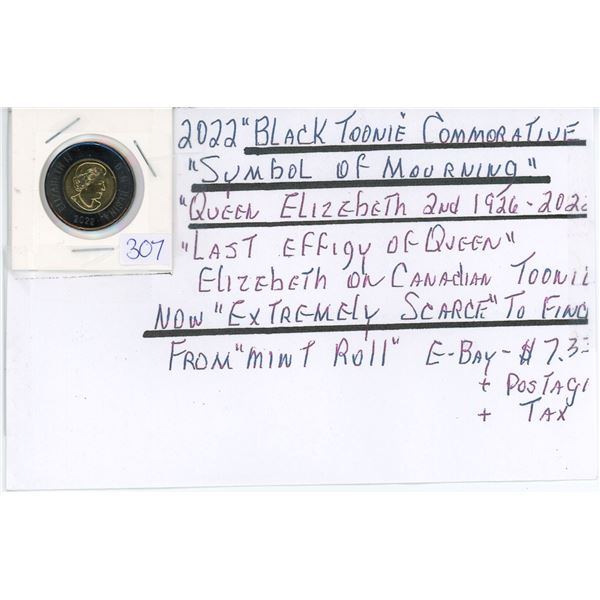 2022 "BLACK TOONIE COMMORATIVE
"SYMBOL OF MOURNING"
"QUEEN ELIZEBETH 2nd 1926-2022
"LAST EFFIGY OF QUEEN"
ELIZEBETH ON CANADIAN TOONIE
NOW "EXTREMELY SCARCE" TO FIND
FROM "MINT ROLL" E-BAY - $7.3
+ POSTAG
+ TAX
ELIZABETH II D.G. REGINA
2022
307